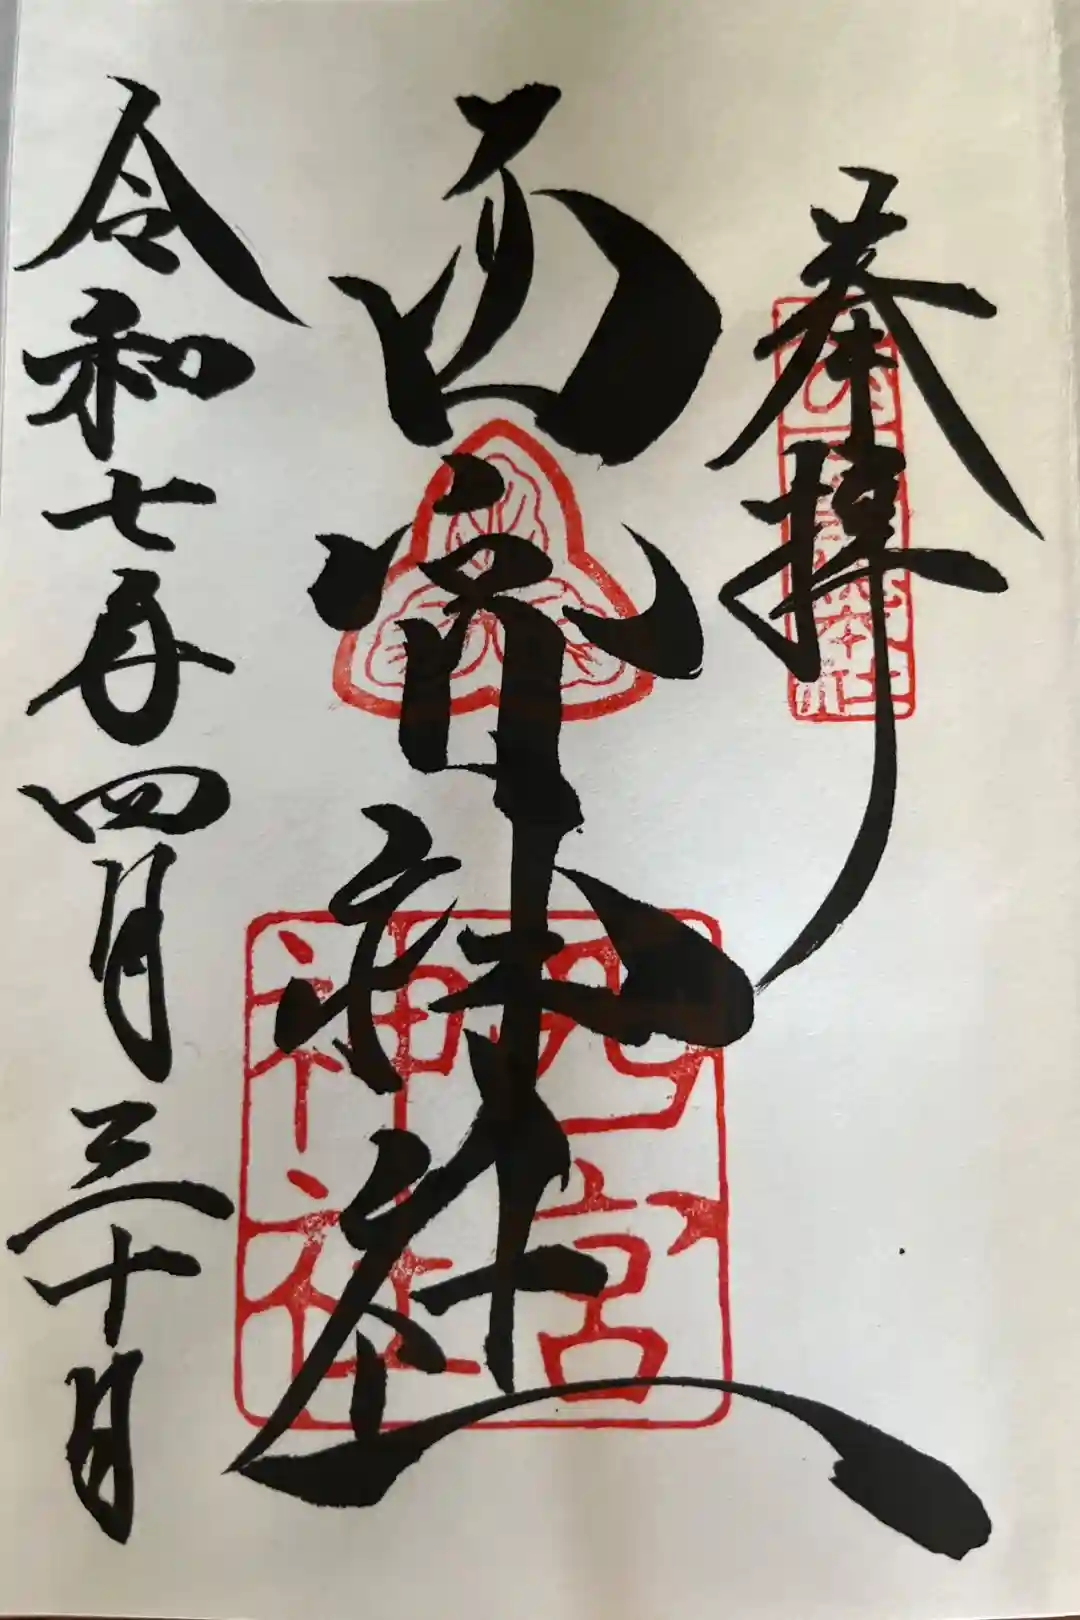 奉拝
西宮神社
令和七年四月三十日
西宮
神社